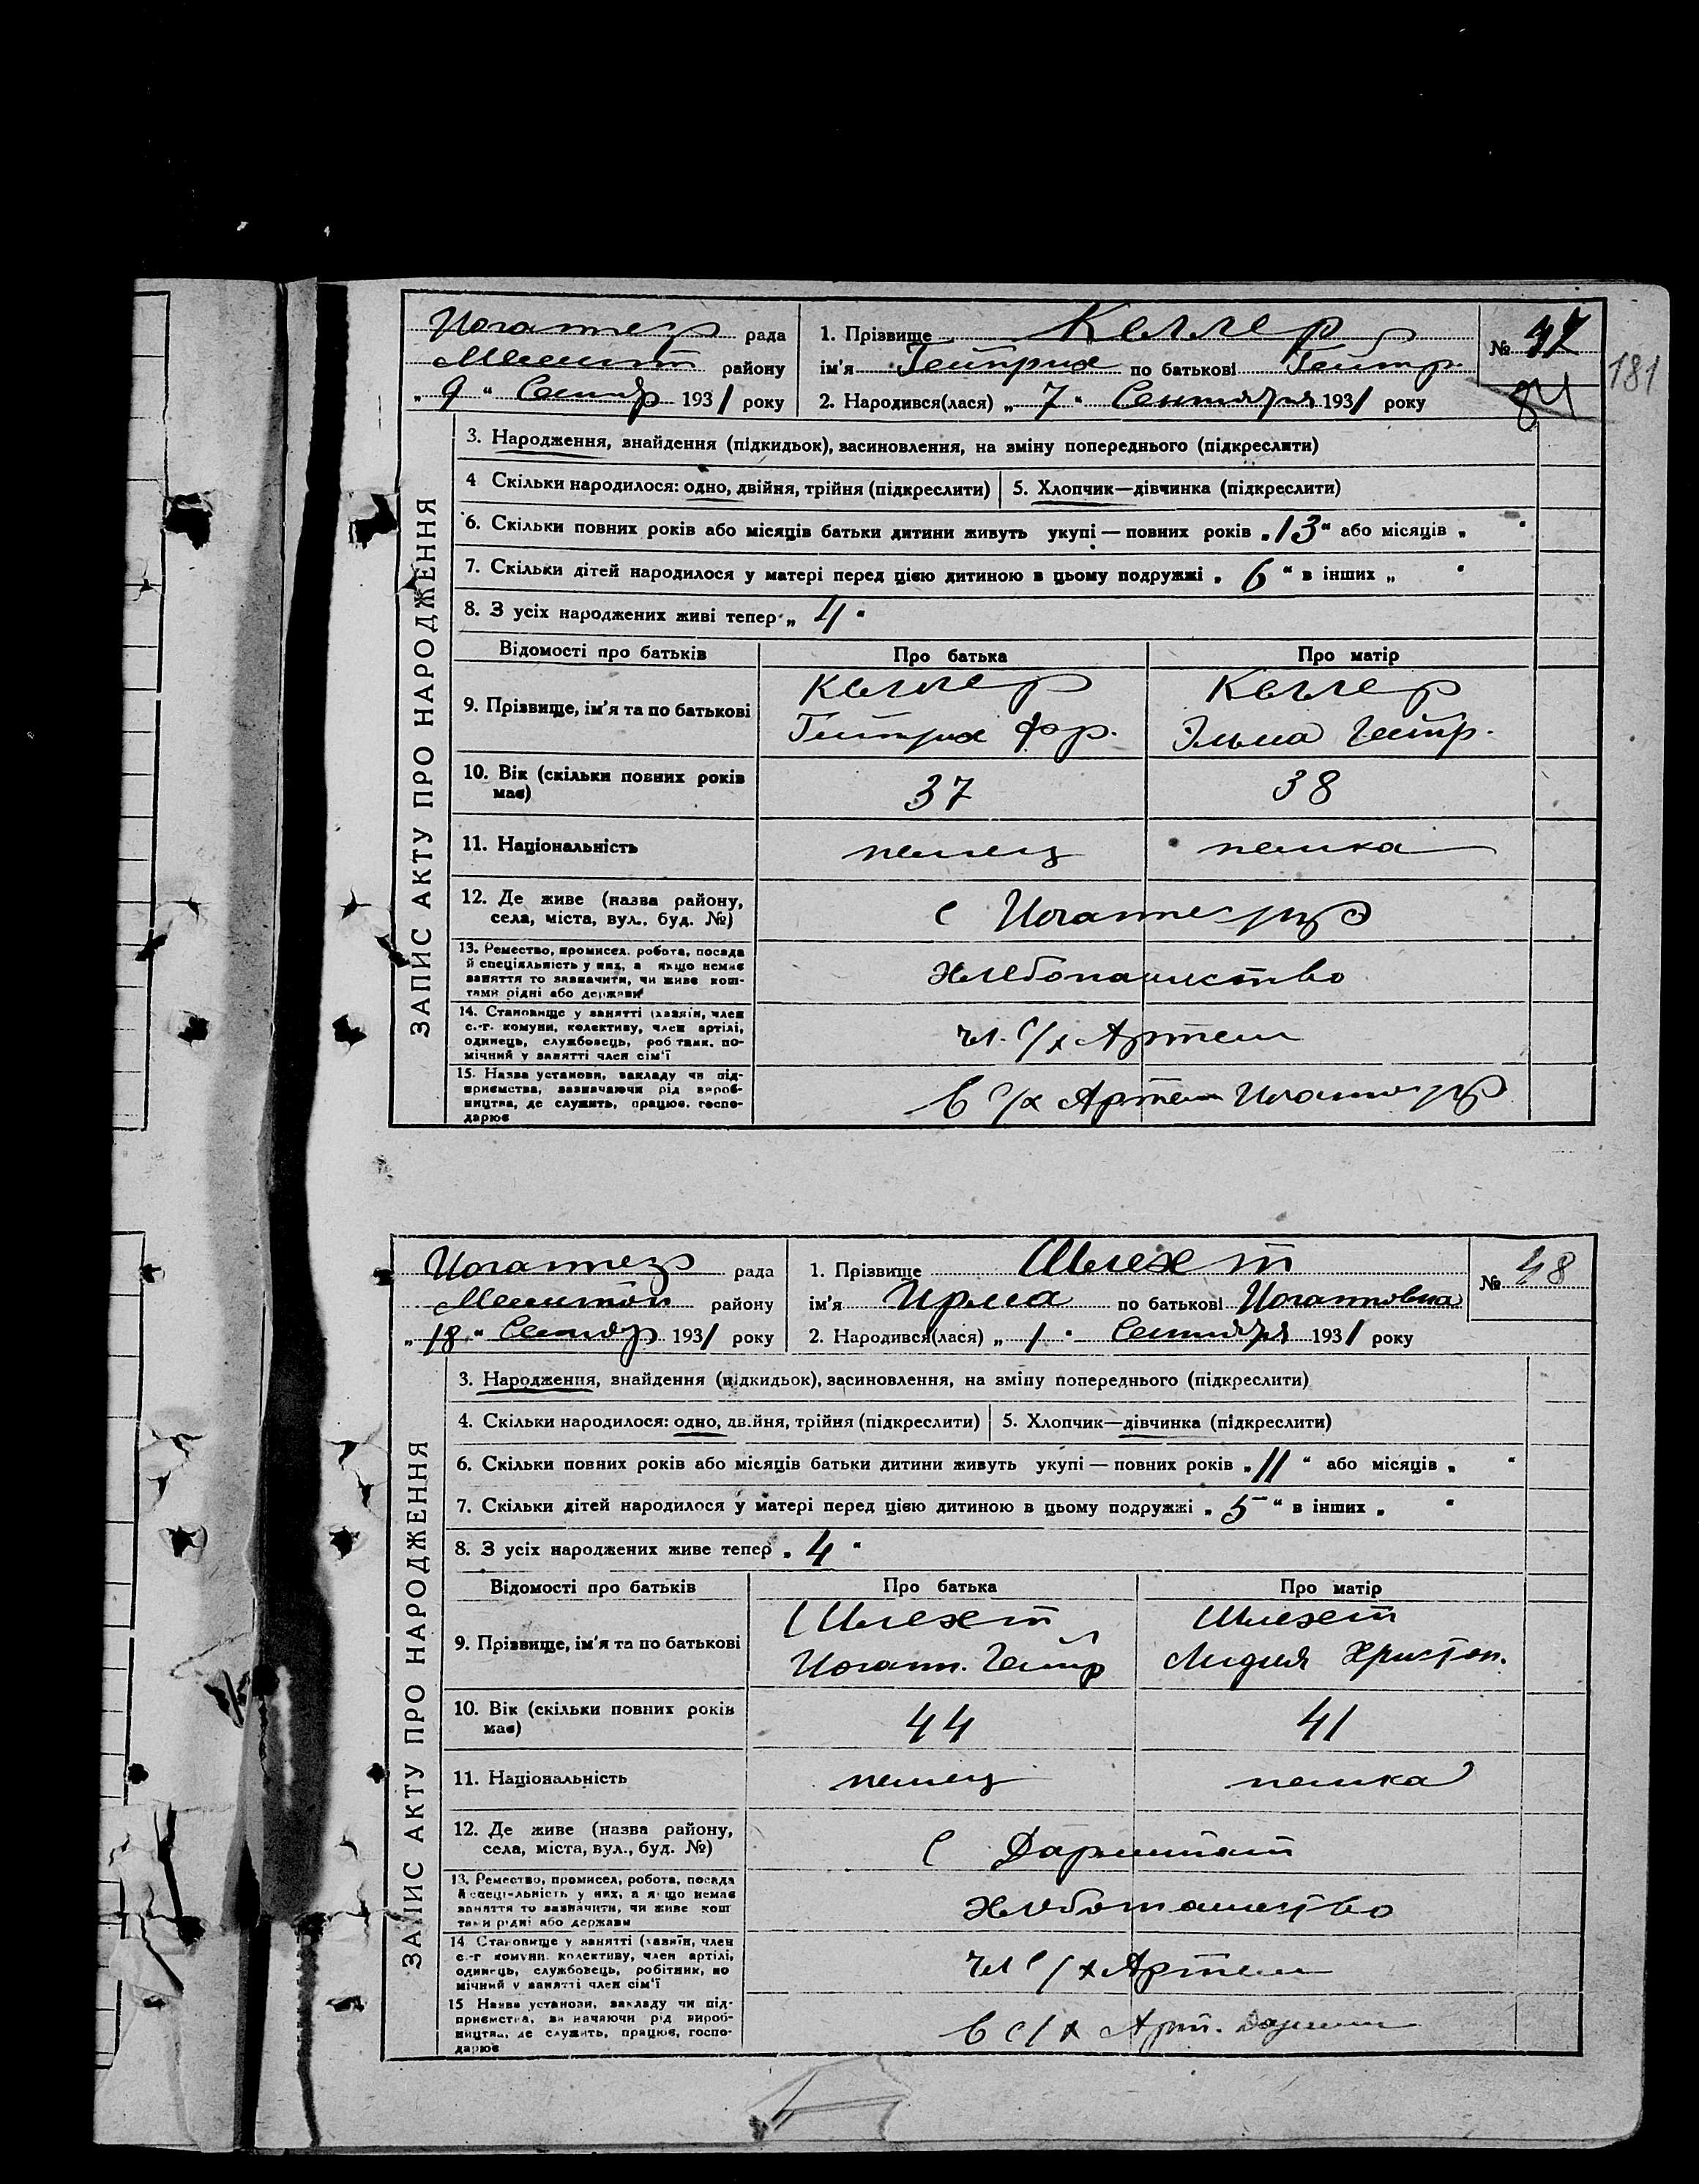 рада 1. Прізвище Келлер № 47
району ім'я Гейнрих по батькові Гейнр. 181
„ 9 “ Сентяб 1931 року 2. Народився(лася) „ 7 “ Сентября 1931 року 84
ЗАПИС АКТУ ПРО НАРОДЖЕННЯ
3. Народження, знайдення (підкидьок), засиновлення, на зміну попереднього (підкреслити)
4 Скільки народилося: одно, двійня, трійня (підкреслити) 5. Хлопчик—дівчинка (підкреслити)
6. Скільки повних років або місяців батьки дитини живуть укупі — повних років „ 13 “ або місяців „ “
7. Скільки дітей народилося у матері перед цією дитиною в цьому подружжі „ 6 “ в інших „ “
8. З усіх народжених живі тепер „ 4 “
Відомості про батьків Про батька Про матір
9. Прізвище, ім'я та по батькові
Келлер Келлер
Гейнрих Фр. Эльма Гейнр.
10. Вік (скільки повних років
має)
37 38
11. Національність немец немка
12. Де живе (назва району,
села, міста, вул., буд. №)
с
13. Ремество, промисел, робота, посада
й спеціяльність у них, а якщо немає
заняття то зазначити, чи живе кош-
тами рідні або держави
хлебопашество
14. Становище у занятті (хазяїн, член
с.-г. комуни, колективу, член артілі,
одинець, службовець, робітник, по-
мічний у занятті член сім'ї
чл. с/х Артели
15. Назва установи, закладу чи під-
приємства, зазначаючи рід вироб-
ництва, де служить, працює, госпо-
дарює
в с/х Артели
рада 1. Прізвище Шлехт № 48
району ім'я Ирма по батькові Иоганновна
„ 18 “ Сентябр 1931 року 2. Народився(лася) „ 1 “ Сентября 1931 року
ЗАПИС АКТУ ПРО НАРОДЖЕННЯ
3. Народження, знайдення (підкидьок), засиновлення, на зміну попереднього (підкреслити)
4. Скільки народилося: одно, двійня, трійня (підкреслити) 5. Хлопчик—дівчинка (підкреслити)
6. Скільки повних років або місяців батьки дитини живуть укупі — повних років „ 11 “ або місяців „ “
7. Скільки дітей народилося у матері перед цією дитиною в цьому подружжі „ 5 “ в інших „ “
8. З усіх народжених живе тепер „ 4 “
Відомості про батьків Про батька Про матір
9. Прізвище, ім'я та по батькові
Шлехт Шлехт
Иоганн. Гейнр Лидия Христоп.
10. Вік (скільки повних років
має)
44 41
11. Національність немец немка
12. Де живе (назва району,
села, міста, вул., буд. №)
с Дармштат
13. Ремество, промисел, робота, посада
й спеціяльність у них, а якщо немає
заняття то зазначити, чи живе кош
тами рідні або держави
Хлебопашество
14 Становище у занятті (хазяїн, член
с.-г комуни, колективу, член артілі,
одинець, службовець, робітник, по
мічний у занятті член сім'ї
чл с/х Артели
15 Назва установи, закладу чи під-
приємства, зазначаючи рід вироб-
ництва, де служить, працює, госпо-
дарює
в с/х Арт. Дармш